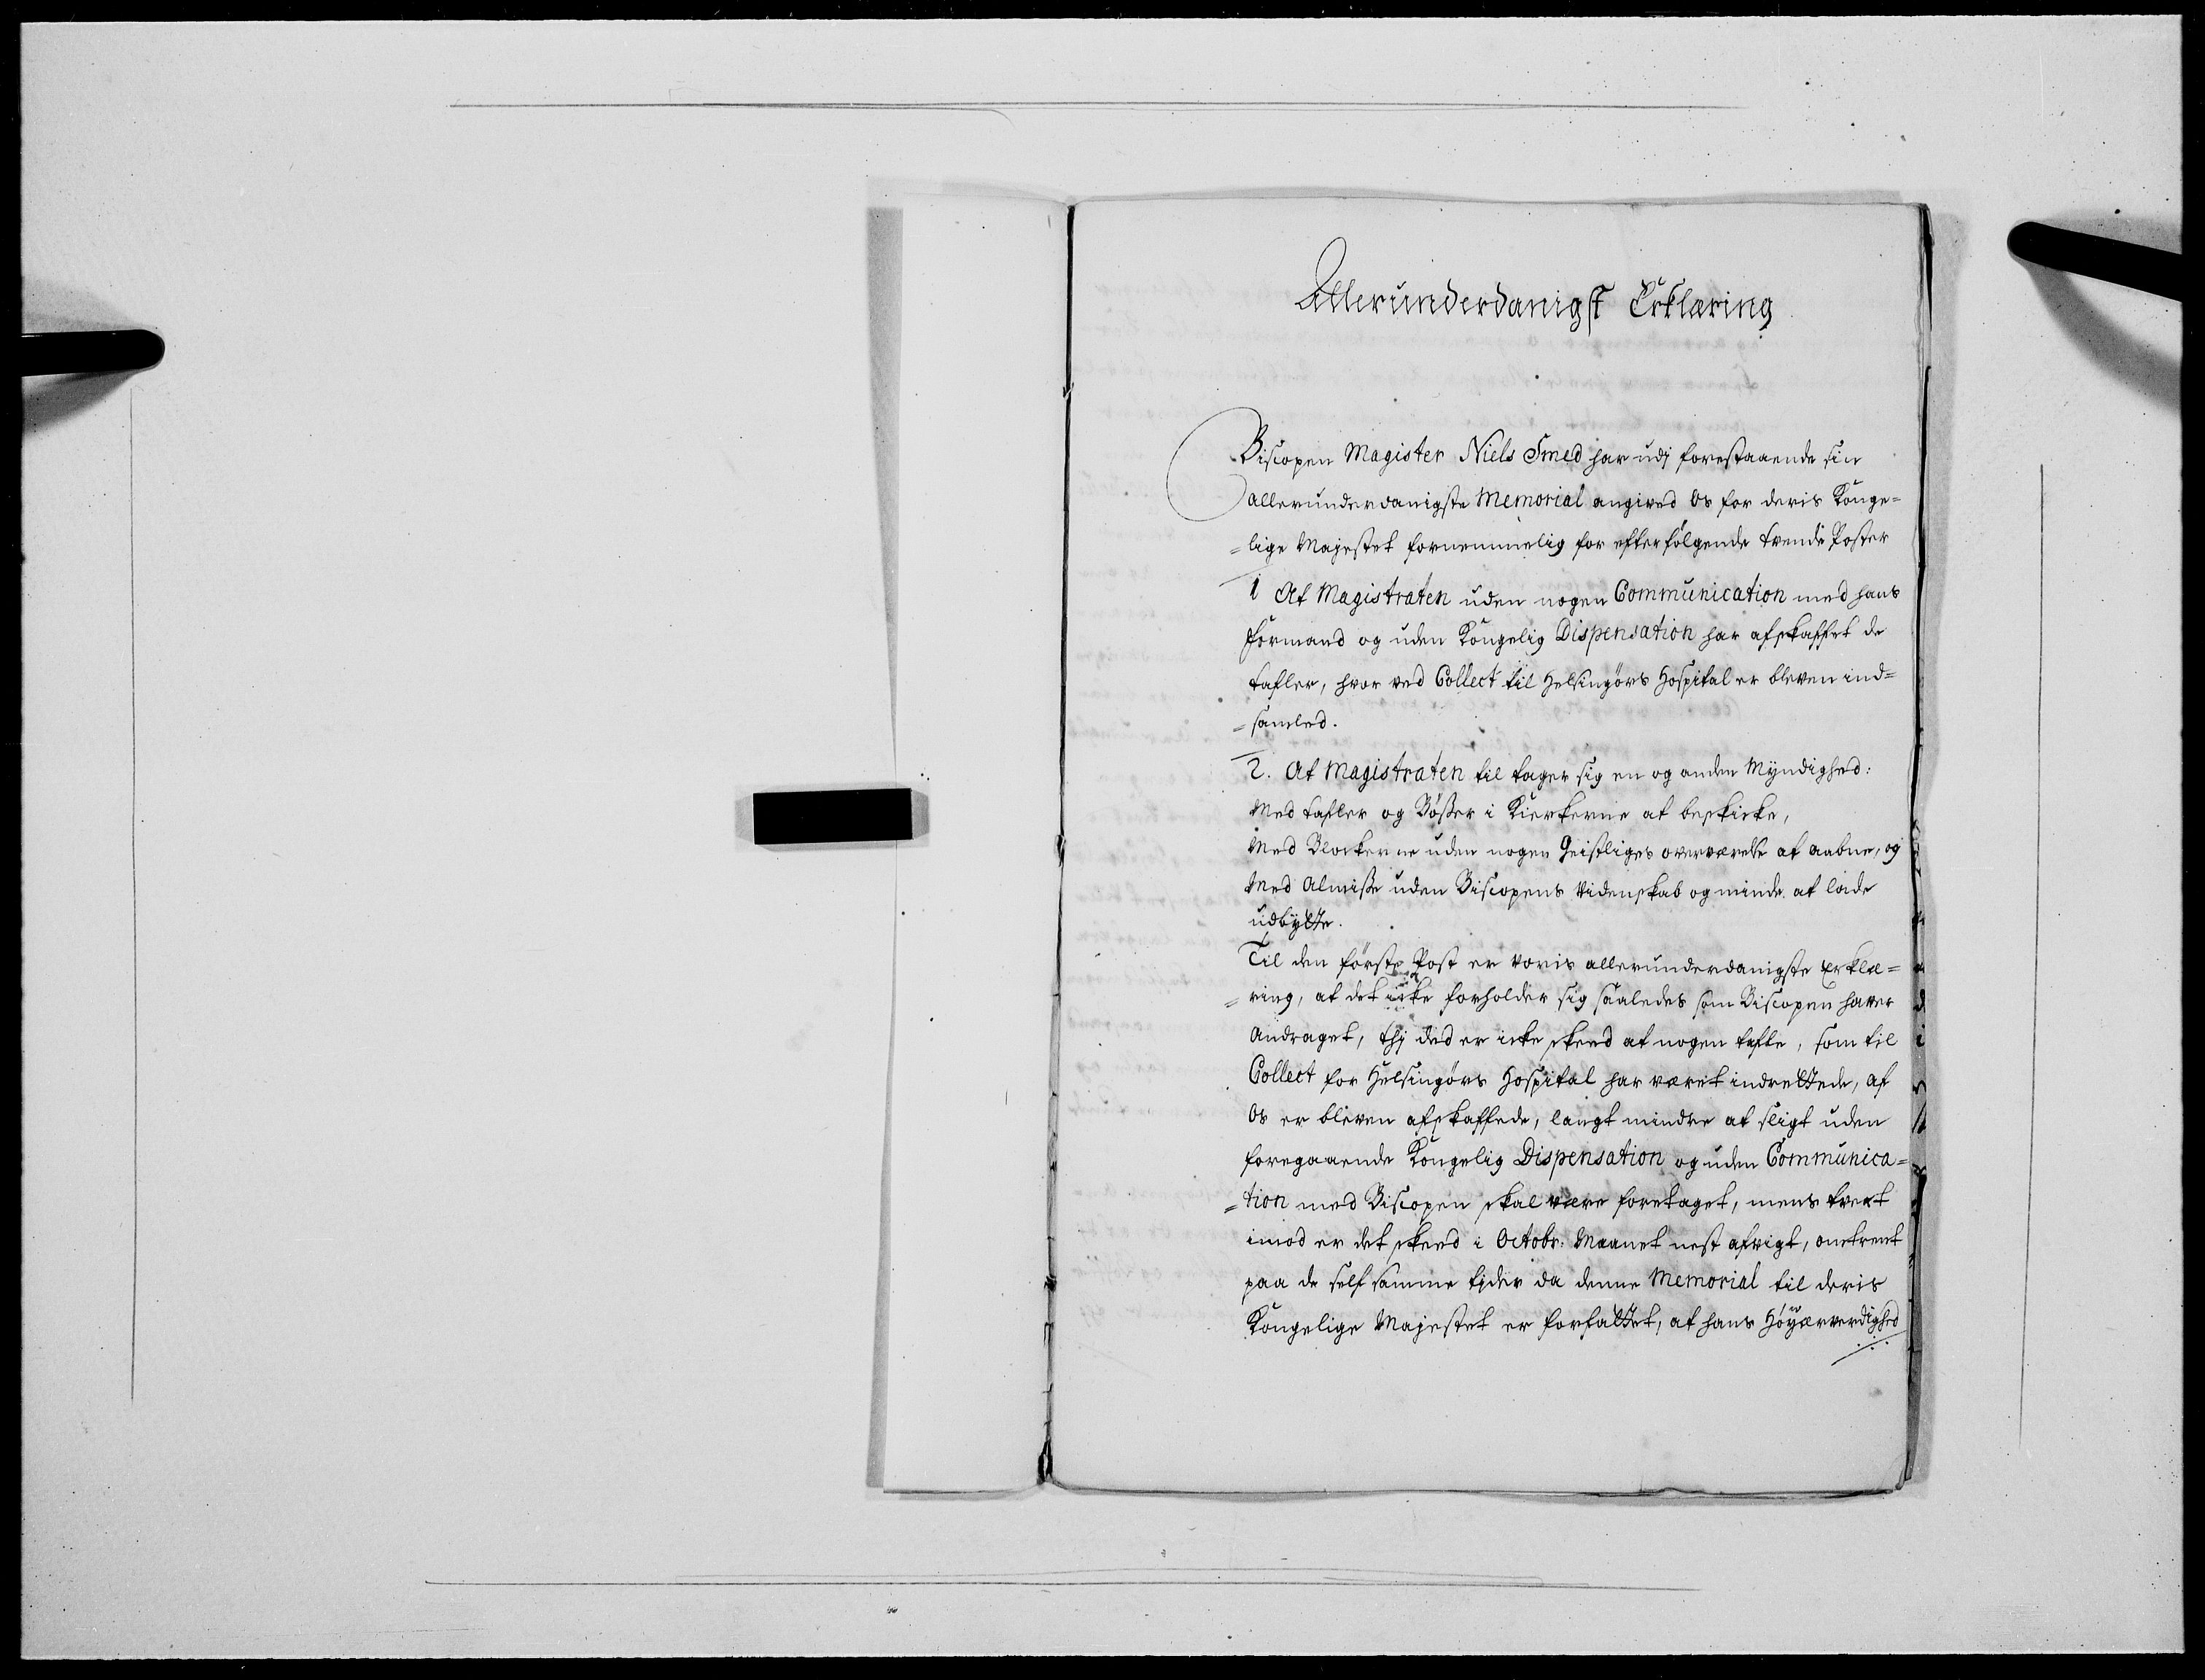 Allerunderdanigst Erklæring
Biscopen Magister Niels Smed har udj forestaaende sin
allerunderdanigste Memorial angived Os for deris Konge=
=lige Majestet fornemmelig for efterfølgende tvende Poster
1 At Magistraten uden nogen Communication med hans
Formand og uden Kongelig Dispensation har afskaffet de
tafler, hvor ved Collect til Helsingørs Hospital er bleven ind=
=samled.
2. At Magistraten til tager sig en og anden Myndighed:
Med tafler og Bøsser i Kierkerne at beskicke,
Med Blockerne uden nogen Geistliges overværelse at aabne, og
Med Almisse uden Biscopens Videnskab og minde at lade
udbytte.
Til den første Post er voris allerunderdanigste Erklæ=
=ring, at det icke forholder sig saaledes som Biscopen haver
Andraget, thj ded er icke skeed at nogen tafle, som til
Collect for Helsingørs Hospital har været indrettede, af
Os er bleven afskaffede, langt mindre at sligt uden
foregaaende Kongelig Dispensation og uden Communica=
=tion med Biscopen skal være foretaget, mens tvert
imod er det skeed i Octobr: Maanet nest afvigt, omtrent
paa de self samme tjder da denne Memorial til deris
Kongelige Majestet er forfattet, at hans Høyærverdighed